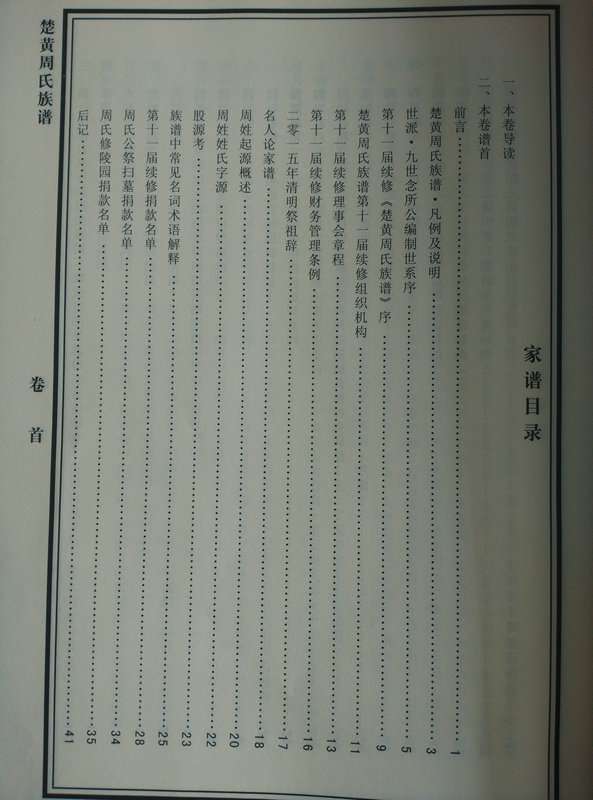 家谱目录
一、本卷导读
二、本卷谱首
前言……1
楚黄周氏族谱·凡例及说明……3
世派·九世念所公编制世系序……5
第十一届续修《楚黄周氏族谱》序……9
楚黄周氏族谱第十一届续修组织机构……11
第十一届续修理事会章程……13
第十一届续修财务管理条例……16
二零一五年清明祭祖辞……17
名人论家谱……18
周姓起源概述……20
周姓姓氏字源……22
股源考……23
族谱中常见名词术语解释……25
第十一届续修捐款名单……28
周氏公祭扫墓捐款名单……34
周氏修陵园捐款名单……35
后记……41
楚黄周氏族谱
卷 首